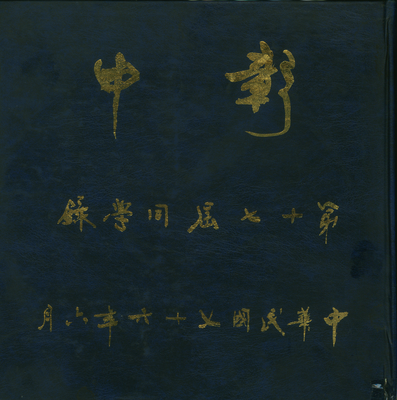 彰中
第十七屆同學錄
中華民國七十六年六月